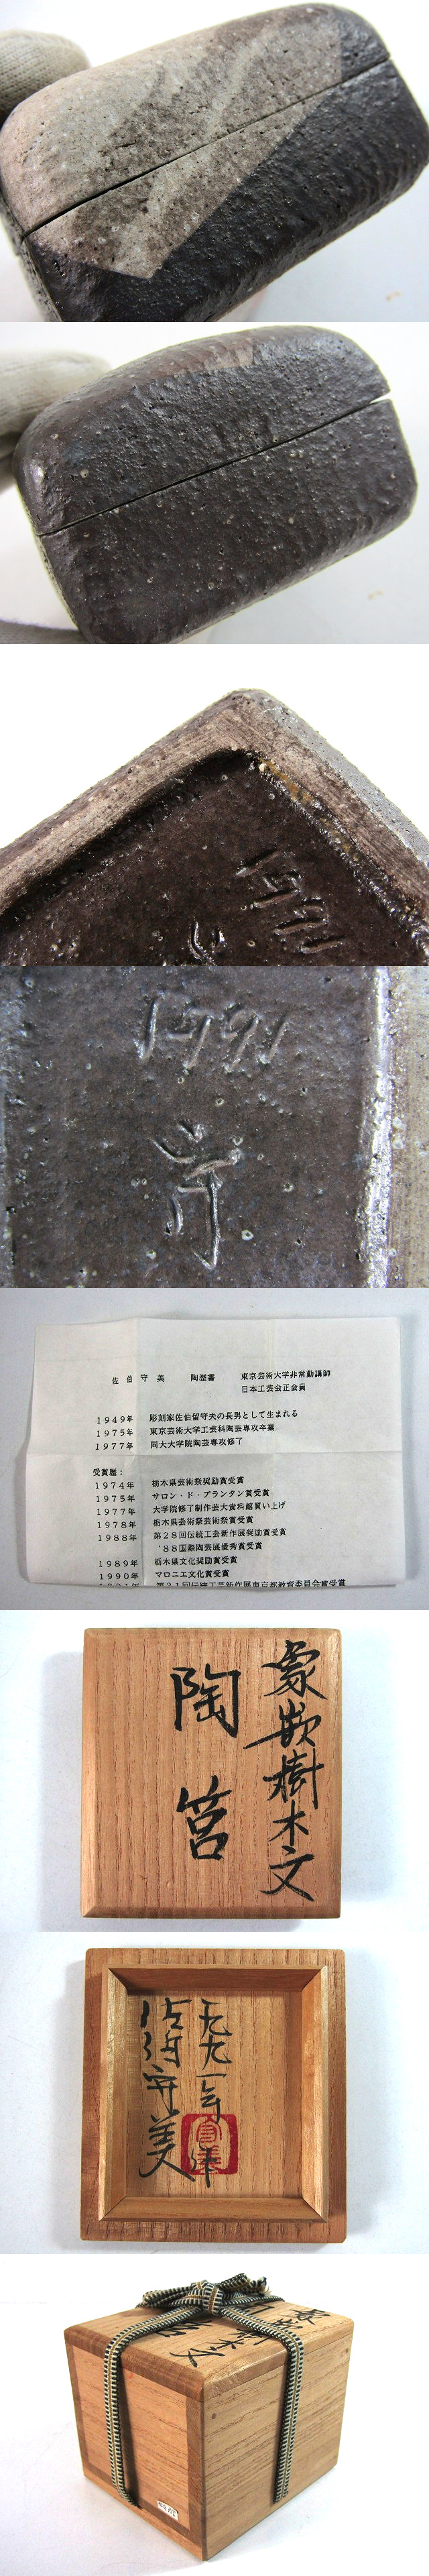 1991
1991
守
佐伯守美 陶歴書 東京芸術大学非常勤講師
日本工芸会正会員
1949年 彫刻家佐伯留守夫の長男として生まれる
1975年 東京芸術大学工芸科陶芸専攻卒業
1977年 同大大学院陶芸専攻修了
受賞歴:
1974年 栃木県芸術祭奨励賞受賞
1975年 サロン・ド・プランタン賞受賞
1977年 大学院修了制作芸大資料館買い上げ
1978年 栃木県芸術祭芸術祭賞受賞
1988年 第28回伝統工芸新作展奨励賞受賞
'88国際陶芸展優秀賞受賞
1989年 栃木県文化奨励賞受賞
1990年 マロニエ文化賞受賞
1991年 第31回伝統工芸新作展東京都教育委員会賞受賞
象嵌樹木文
陶筥
一九九一年
佐伯守美